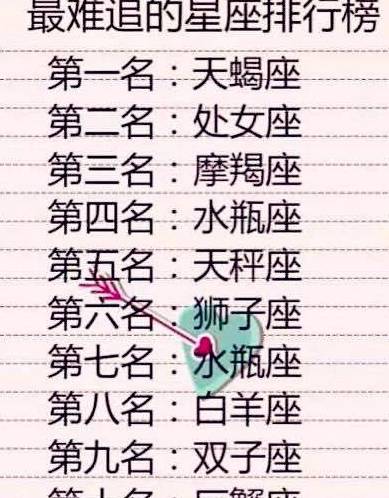 最难追的星座排行榜
第一名：天蝎座
第二名：处女座
第三名：摩羯座
第四名：水瓶座
第五名：天秤座
第六名：狮子座
第七名：水瓶座
第八名：白羊座
第九名：双子座